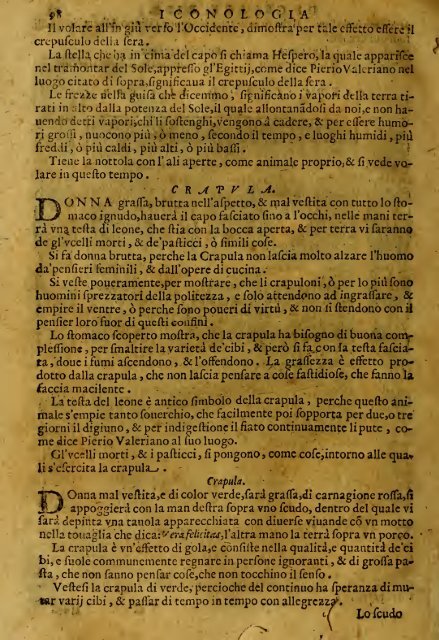 98 ICONOLOGIA
Il volare all'in giù verso l'Occidente, dimostra per tale effetto essere il
crepusculo della sera.
La stella che ha in cima del capo si chiama Hespero, la quale apparisce
nel tramontar del Sole, appresso gl'Egittij, come dice Pierio Valeriano nel
luogo citato di sopra, significaua il crepusculo della sera.
Le frezze nella guisa che dicemmo, significano i vapori della terra ti-
rati in alto dalla potenza del Sole, il quale allontanãdosi da noi, e non ha-
uendo detti vapori, chi li sostenghi, vengono à cadere, & per essere humo-
ri grossi, nuocono più, ò meno, secondo il tempo, e luoghi humidi, più
freddi, ò più caldi, più alti, ò più bassi.
Tiene la nottola con l'ali aperte, come animale proprio, & si vede vo-
lare in questo tempo.
CRAPVLA.
DONNA grassa, brutta nell'aspetto, & mal vestita con tutto lo sto-
maco ignudo, hauerà il capo fasciato sino a l'occhi, nelle mani ter-
rà vna testa di leone, che stia con la bocca aperta, & per terra vi saranno
de gl'vcelli morti, & de'pasticci, ò simili cose.
Si fa donna brutta, perche la Crapula non lascia molto alzare l'huomo
da'pensieri feminili, & dall'opere di cucina.
Si veste poueramente, per mostrare, che li crapuloni, ò per lo più sono
huomini sprezzatori della politezza, e solo attendono ad ingrassare, &
empire il ventre, ò perche sono poueri di virtù, & non si stendono con il
pensier loro fuor di questi confini.
Lo stomaco scoperto mostra, che la crapula ha bisogno di buona com-
plessione, per smaltire la varietà de'cibi, & però si fa con la testa fascia-
ta, doue i fumi ascendono, & l'offendono. La grassezza è effetto pro-
dotto dalla crapula, che non lascia pensare a cose fastidiose, che fanno la
faccia macilente.
La testa del leone è antico simbolo della crapula, perche questo ani-
male s'empie tanto souerchio, che facilmente poi sopporta per due, o tre
giorni il digiuno, & per indigestione il fiato continuamente li pute, co-
me dice Pierio Valeriano al suo luogo.
Gl'vcelli morti, & i pasticci, si pongono, come cose, intorno alle qua-
li s'esercita la crapula.
Crapula.
DOnna mal vestita, e di color verde, sarà grassa, di carnagione rossa, si
appoggierà con la man destra sopra vno scudo, dentro del quale vi
sarà depinta vna tauola apparecchiata con diuerse viuande cõ vn motto
nella touaglia che dica: Vera felicitas, l'altra mano la terrà sopra vn porco.
La crapula è vn'effetto di gola, e consiste nella qualità, e quantità de'ci
bi, e suole communemente regnare in persone ignoranti, & di grossa pa-
sta, che non sanno pensar cose, che non tocchino il senso.
Vestesi la crapula di verde, percioche del continuo ha speranza di mu-
tar varij cibi, & passar di tempo in tempo con allegrezza.
Lo scudo